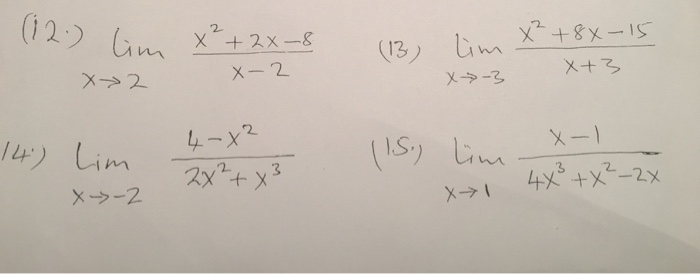 (12.) lim x→2 (x² + 2x − 8)/(x − 2)
(13) lim x→−3 (x² + 8x − 15)/(x + 3)
14.) lim x→−2 (4 − x²)/(2x² + x³)
(15.) lim x→1 (x − 1)/(4x³ + x² − 2x)